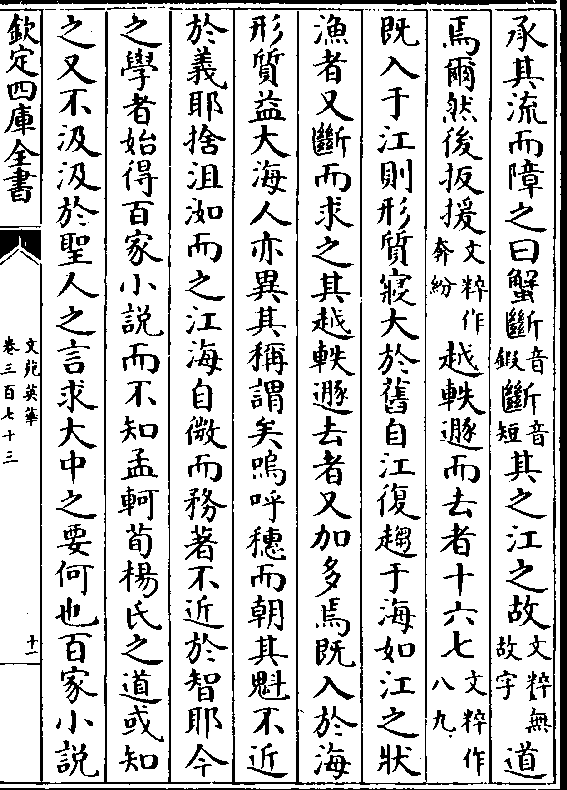 承其流而障之曰蟹斷音鍜斷音短其之江之故文粹無故字道
焉爾然後扳援文粹作奔紛越軼遯而去者十六七文粹作八九
既入于江則形質寖大於舊自江復趨于海如江之狀
漁者又斷而求之其越軼遯去者又加多焉既入於海
形質益大海人亦異其稱謂矣嗚呼穗而朝其魁不近
於義耶捨沮洳而之江海自微而務著不近於智耶今
之學者始得百家小說而不知孟軻荀楊氏之道或知
之又不汲汲於聖人之言求大中之要何也百家小說
欽定四庫全書
文苑英華
卷三百七十三
十一